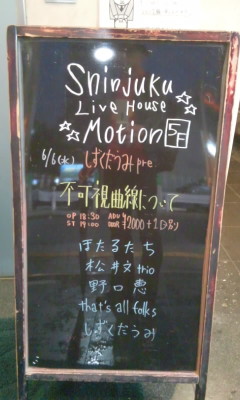 Shinjuku
Live House
Motion 5F
6/6(水) しずくだうみ pre.
不可視曲線について
OP 18:30 ADV
ST 19:00 DOOR ¥2000+1Dあり
ほたるたち
松井文 trio
野口恵
that's all folks
しずくだうみ